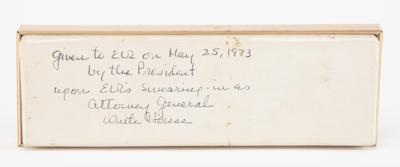 Given to ELR on May 25, 1973
by the President
upon ELR's swearing-in as
Attorney General
White House